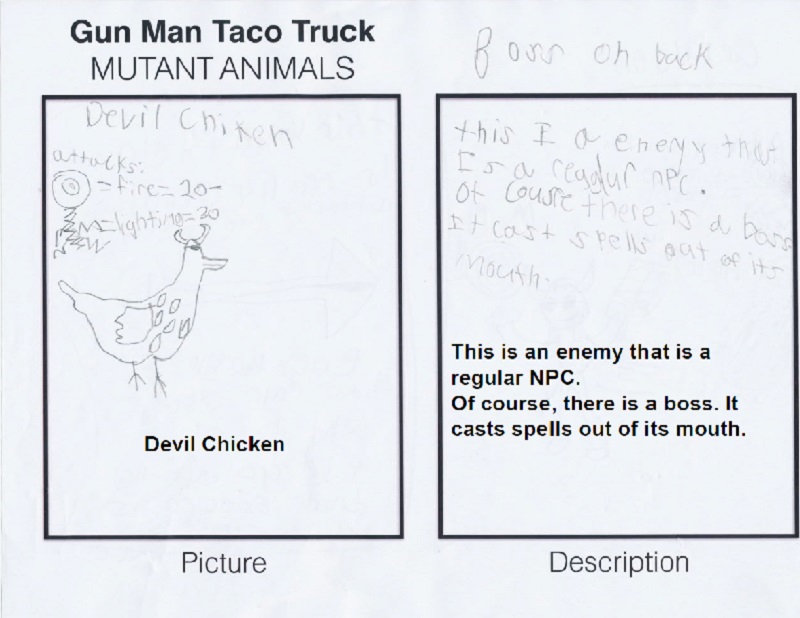 Gun Man Taco Truck
MUTANT ANIMALS
Boss on back
Devil Chiken
attacks:
= fire = 20
= lighting = 20
Devil Chicken
Picture
this I a enemy that
Is a reagulr NPC.
Of Course there is a boss
It cast spells out of its
mouth.
This is an enemy that is a
regular NPC.
Of course, there is a boss. It
casts spells out of its mouth.
Description